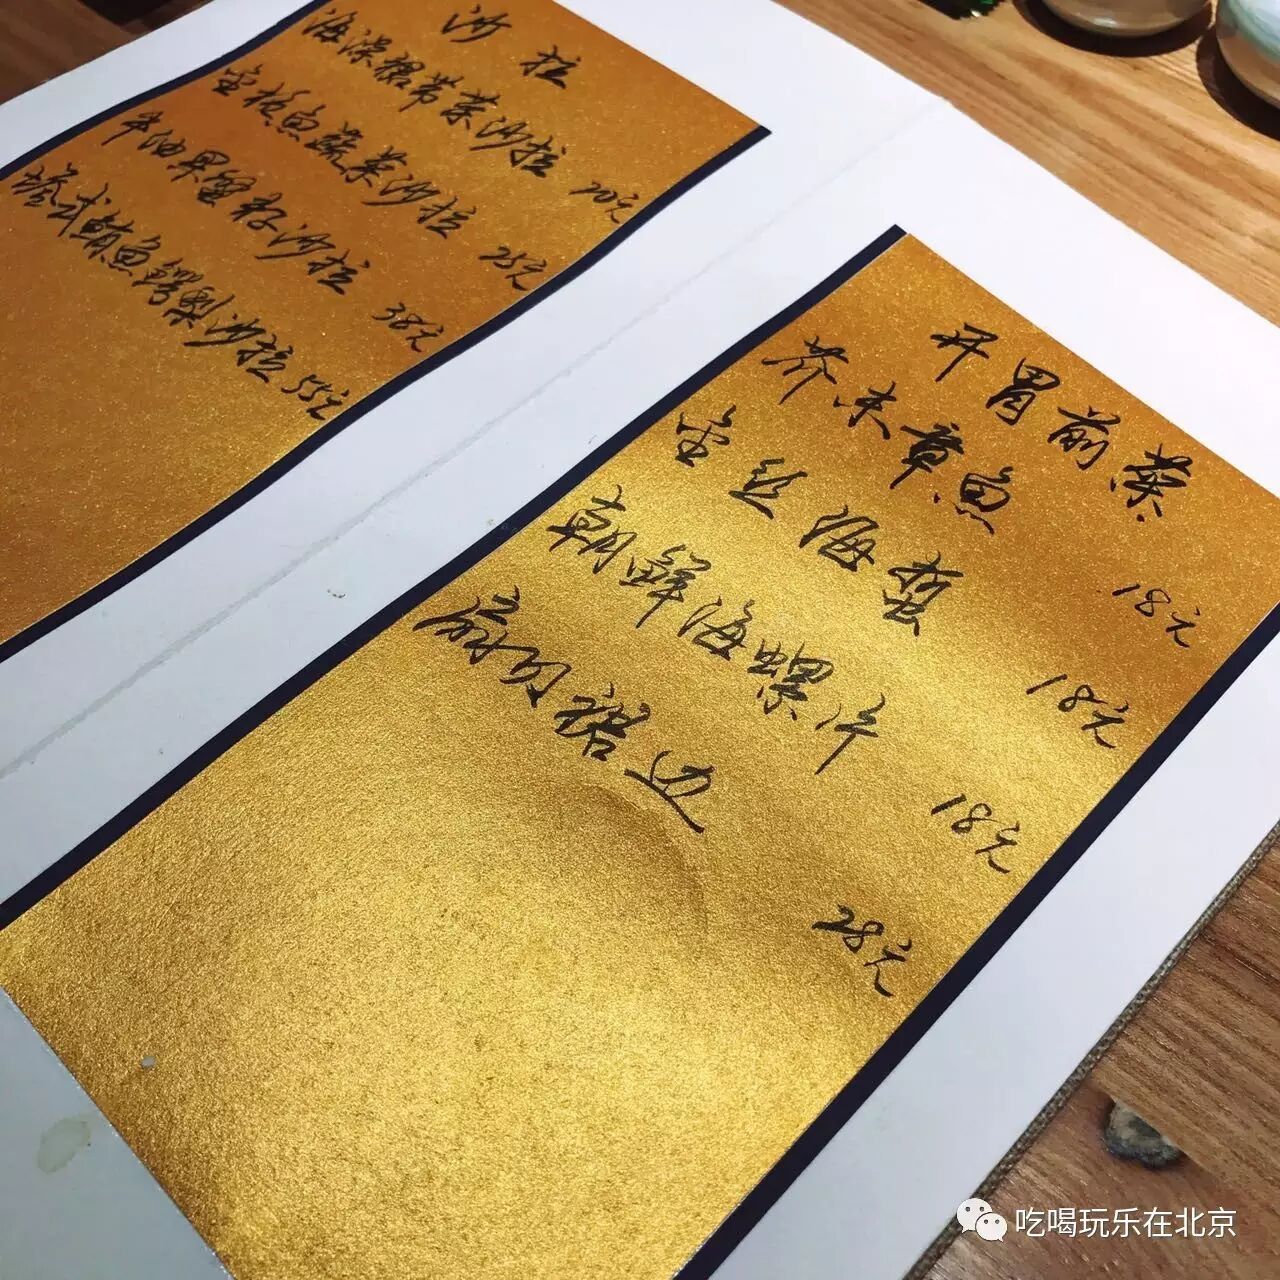 沙拉
海澡裙带菜沙拉 20元
金枪鱼蔬菜沙拉 25元
牛油果蟹籽沙拉 38元
塔式鲔鱼鳄梨沙拉 55元
开胃前菜
芥末章鱼 18元
金丝海蜇 18元
朝鲜海螺片 18元
扇贝裙边 28元
吃喝玩乐在北京